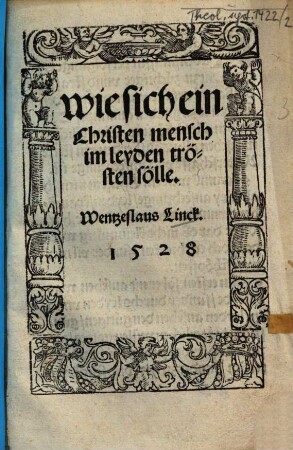 Theol. syst. 1422/2
wie sich ein
Christen mensch
im leyden trö⸗
sten sölle.
Wentzeslaus Linck.
1 5 2 8